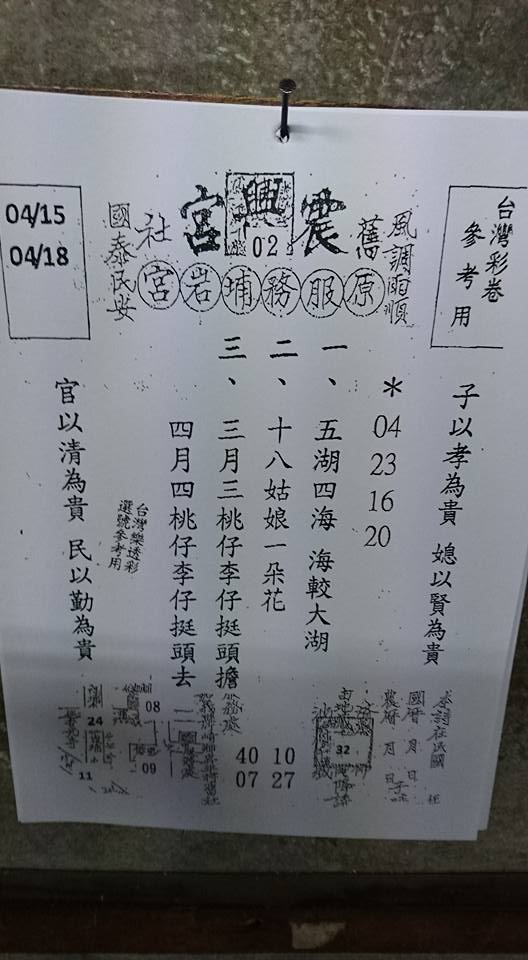 台灣彩卷
參考用
風調雨順
舊
震興宮
02
社
國泰民安
原服務埔岩宮
04/15
04/18
子以孝為貴 媳以賢為貴
＊ 04 23 16 20
一、五湖四海 海較大湖
二、十八姑娘一朵花
三、三月三桃仔李仔挺頭擔
四月四桃仔李仔挺頭去
台灣樂透彩
選號參考用
官以清為貴 民以勤為貴
國曆 月 日
農曆 月 日
32
10
27
40
07
08
09
24
11